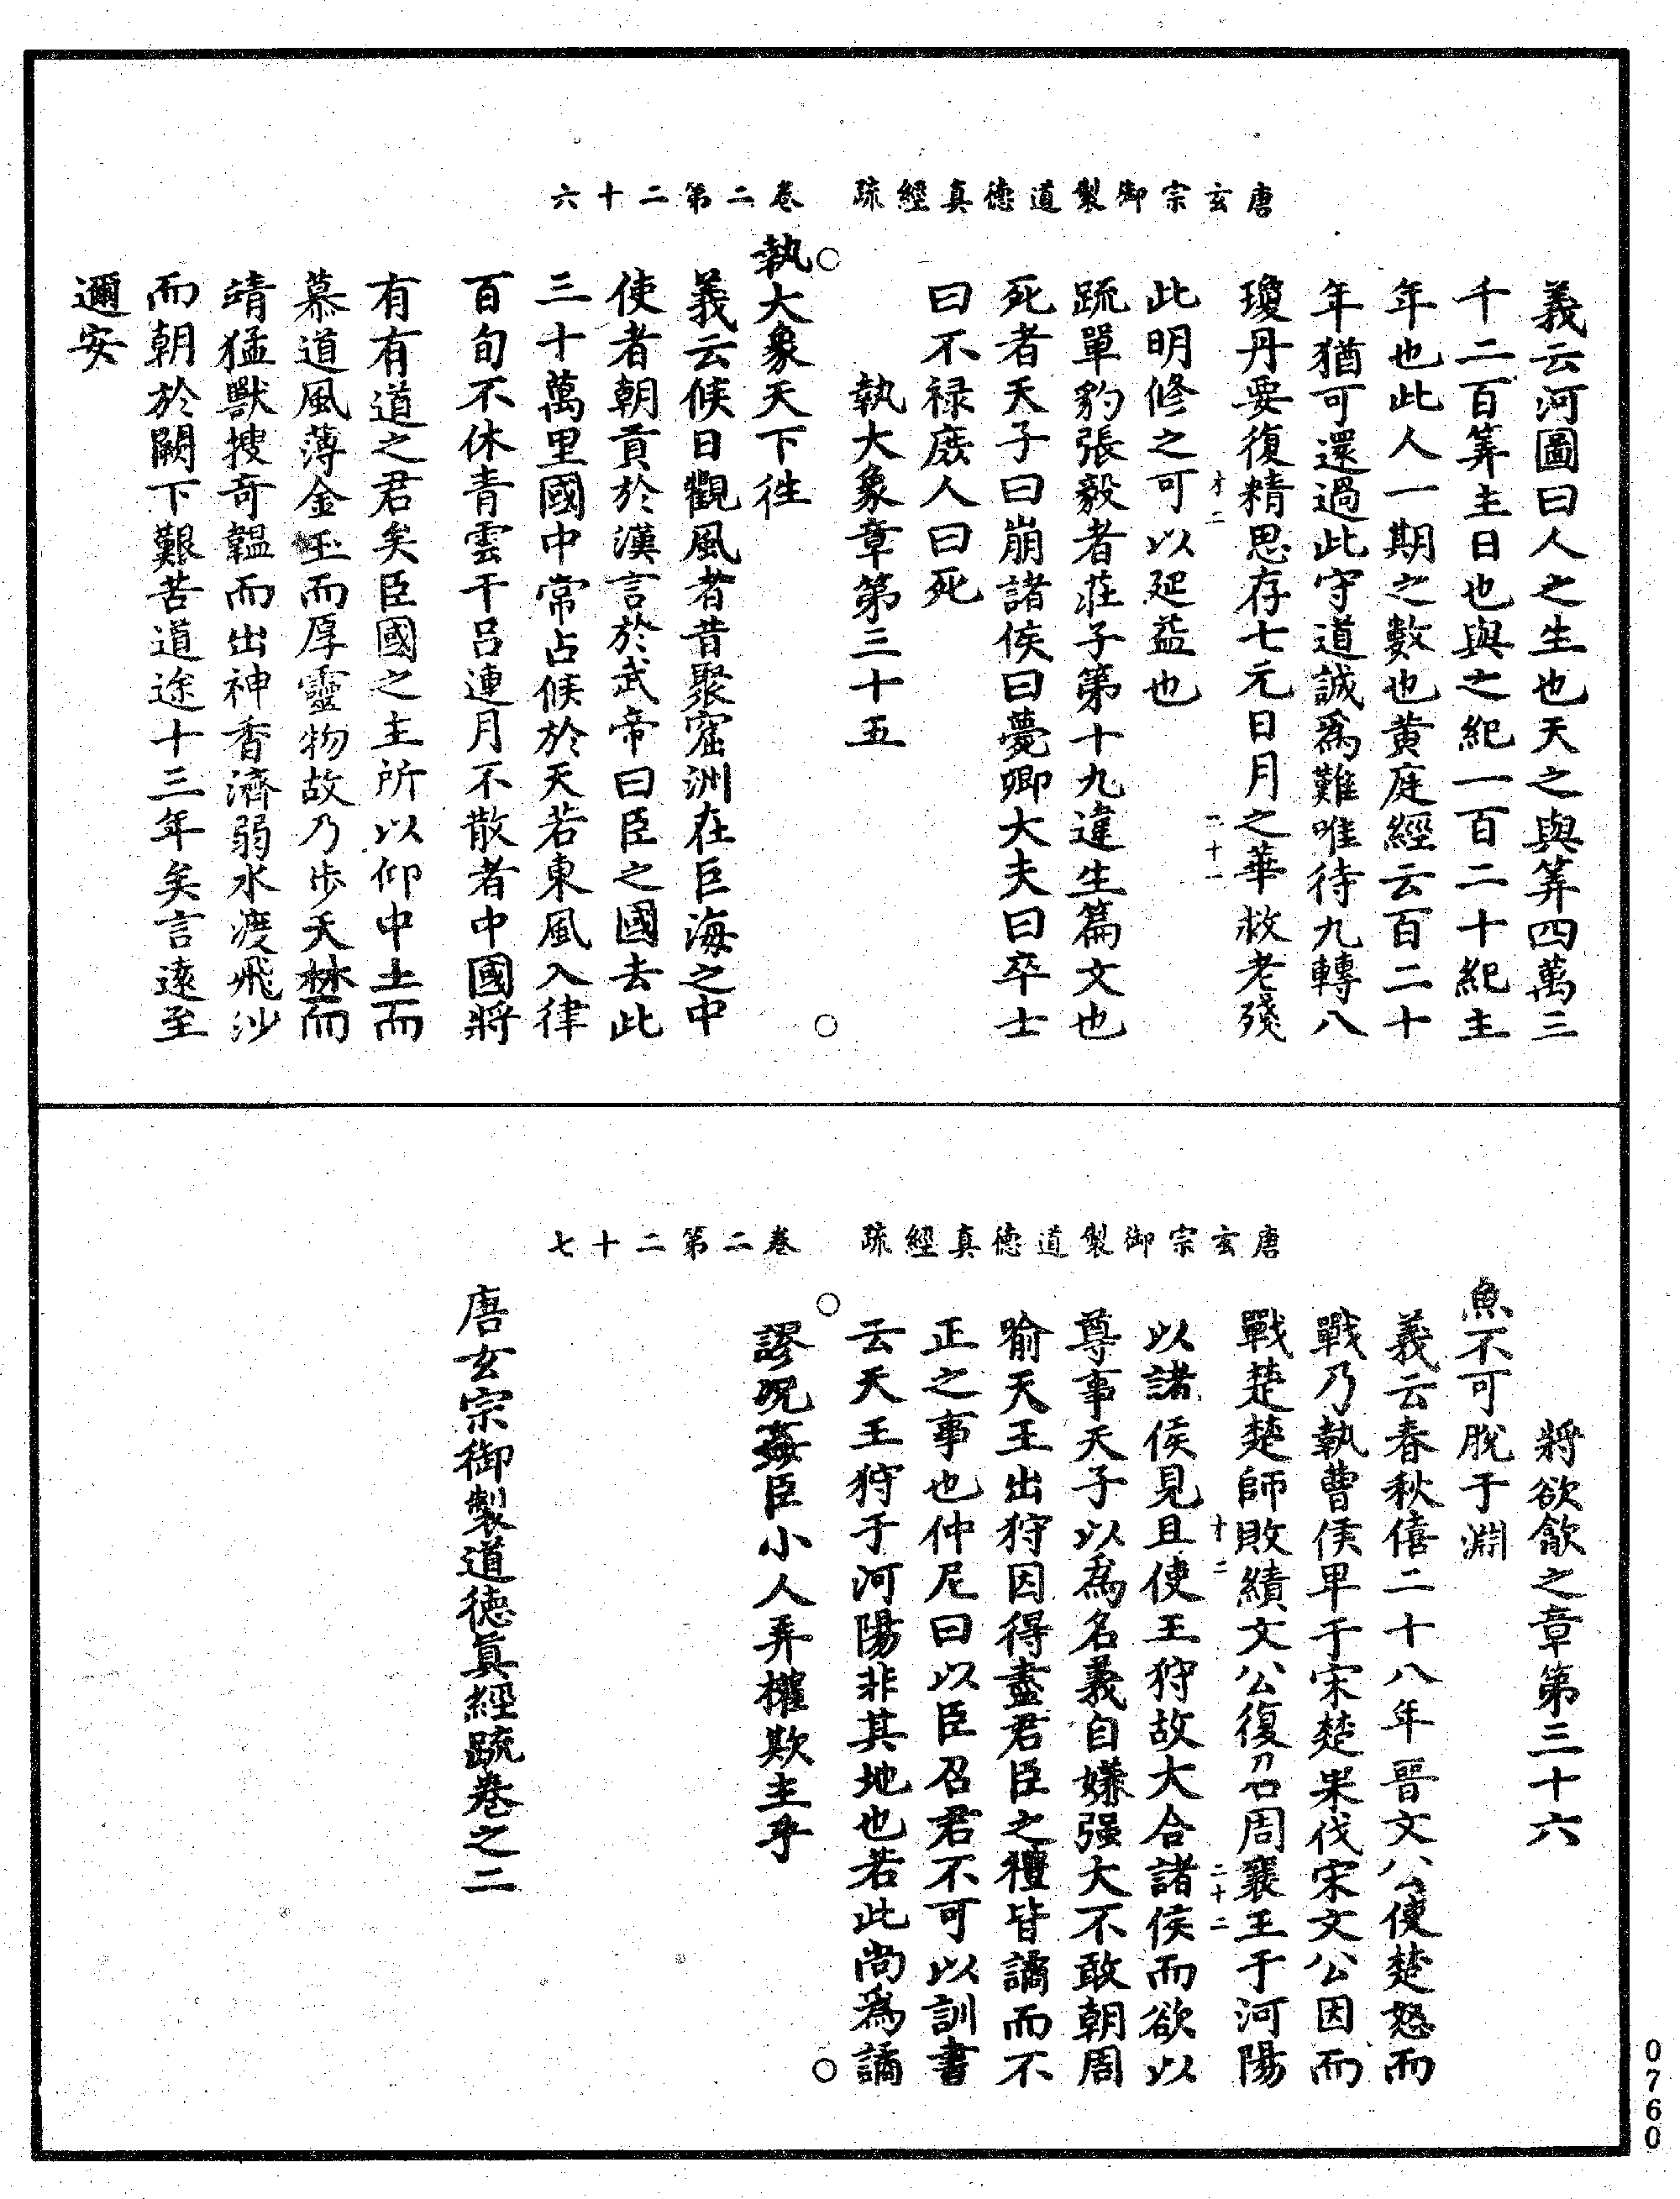 唐玄宗御製道德真經疏　卷二第二十六
義云河圖曰人之生也天之與筭四萬三
千二百筭主日也與之紀一百二十紀主
年也此人一期之數也黄庭經云百二十
年猶可還過此守道誠爲難唯待九轉八
瓊丹要復精思存七元日月之華救老殘
才二　二十一
此明修之可以延益也
疏單豹張毅者莊子第十九違生篇文也
死者天子曰崩諸侯曰薨卿大夫曰卒士
曰不禄庶人曰死
執大象章第三十五
執大象天下往
義云候日觀風者昔聚窟洲在巨海之中
使者朝貢於漢言於武帝曰臣之國去此
三十萬里國中常占候於天若東風入律
百旬不休青雲干吕連月不散者中國將
有有道之君矣臣國之主所以仰中土而
慕道風薄金玉而厚靈物故乃步天林而
靖猛獸搜奇韞而出神香濟弱水渡飛沙
而朝於闕下艱苦道途十三年矣言遠至
邇安
唐玄宗御製道德真經疏　卷二第二十七
將欲歙之章第三十六
魚不可脫于淵
義云春秋僖二十八年晉文公使楚怒而
戰乃執曹侯畀于宋楚果伐宋文公因而
戰楚楚師敗績文公復召周襄王于河陽
才二　二十二
以諸侯見且使王狩故大合諸侯而欲以
尊事天子以爲名義自嫌强大不敢朝周
喻天王出狩因得盡君臣之禮皆譎而不
正之事也仲尼曰以臣召君不可以訓書
云天王狩于河陽非其地也若此尚爲譎
謬况姦臣小人弄權欺主乎
唐玄宗御製道德真經疏卷之二
0760